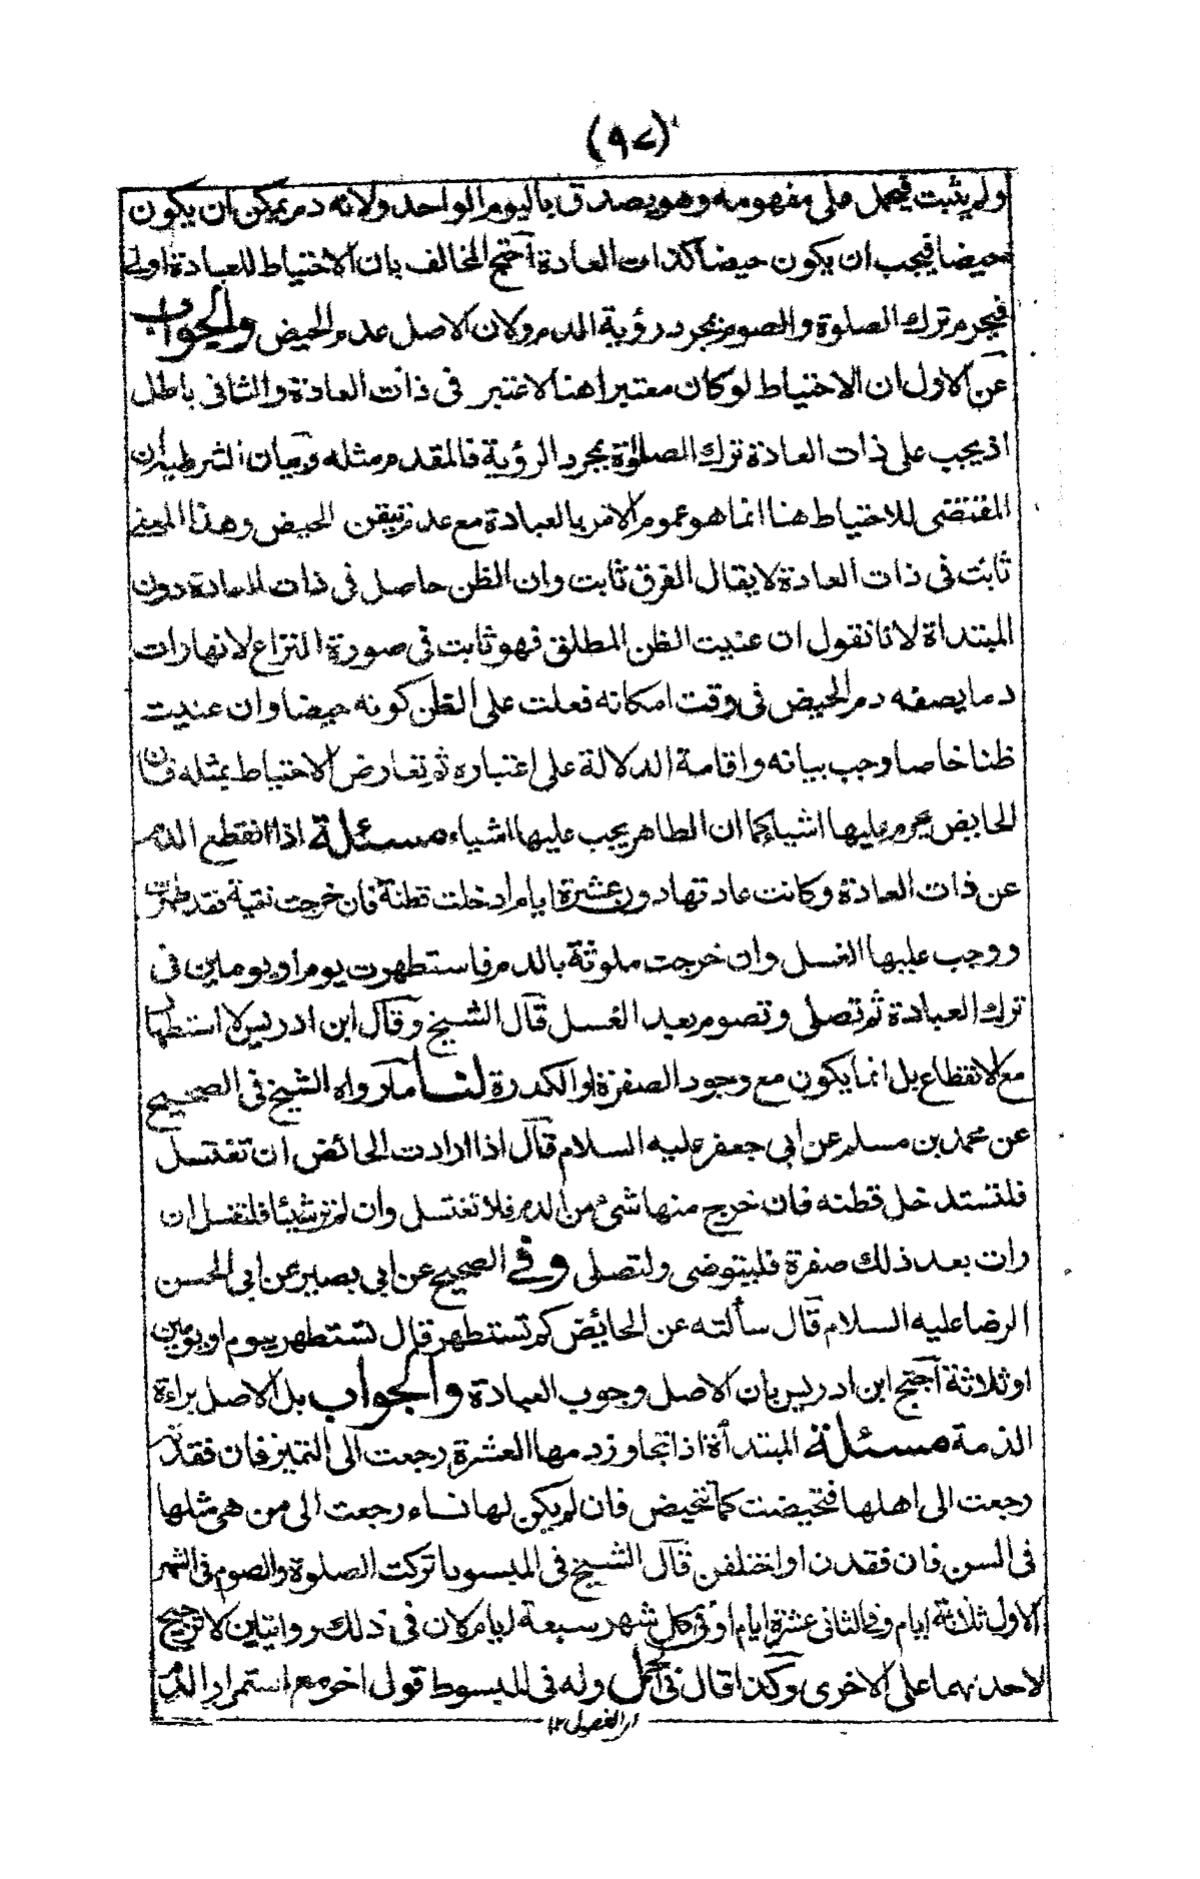 (٩٧)
ولم يثبت فيحمل على مفهومه وهو يصدق باليوم الواحد ولانه دم يمكن ان يكون
حيضا فيجب ان يكون حيضا كذات العادة احتج المخالف بان الاحتياط للعبادة اولى
فيحرم ترك الصلوة والصوم بمجرد رؤية الدم ولان الاصل عدم الحيض والجواب
عن الاول ان الاحتياط لو كان معتبرا هنا لاعتبر فى ذات العادة والثانى باطل
اذ يجب على ذات العادة ترك الصلوة بمجرد الرؤية فالمقدم مثله وبيان الشرطية ان
المقتضى للاحتياط هنا انما هو عموم الامر بالعبادة مع عدم تيقن الحيض وهذا المعنى
ثابت فى ذات العادة لا يقال الفرق ثابت وان الظن حاصل فى ذات العادة دون
المبتداة لانا نقول ان عنيت الظن المطلق فهو ثابت فى صورة النزاع لانها رات
دما يصفه دم الحيض فى وقت امكانه فعلت على الظن كونه حيضا وان عنيت
ظنا خاصا وجب بيانه واقامة الدلالة على اعتباره ثم تعارض الاحتياط بمثله فان
الحايض يحرم عليها اشياء كما ان الطاهر يجب عليها اشياء مسئلة اذا انقطع الدم
عن ذات العادة وكانت عادتها دون عشرة ايام ادخلت قطنة فان خرجت نقية فقد طهرت
ووجب عليها الغسل وان خرجت ملوثة بالدم فاستطهرت يوم او يومين فى
ترك العبادة ثم تصلى وتصوم بعد الغسل قال الشيخ وقال ابن ادريس لا استطهار
مع الانقطاع بل انما يكون مع وجود الصفرة او الكدرة لنا ما رواه الشيخ فى الصحيح
عن محمد بن مسلم عن ابى جعفر عليه السلام قال اذا ارادت الحائض ان تغتسل
فلتستدخل قطنه فان خرج منها شئ من الدم فلا تغتسل وان لم تر شيئا فلتغسل ان
رات بعد ذلك صفرة فليتوضى ولتصلى وفى الصحيح عن ابى بصير عن ابى الحسن
الرضا عليه السلام قال سألته عن الحائض كم تستطهر قال تستطهر بيوم او يومين
او ثلاثة احتج ابن ادريس بان الاصل وجوب العبادة والجواب بل الاصل براءة
الذمة مسئلة المبتدأة اذا تجاوز دمها العشرة رجعت الى التميز فان فقدته
رجعت الى اهلها فتحيضت كما تحيض فان لم يكن لها نساء رجعت الى من هى مثلها
فى السن فان فقدن او اختلفن قال الشيخ فى المبسوط تركت الصلوة والصوم فى الشهر
الاول ثلاثة ايام وفى الثانى عشرة ايام او فى كل شهر سبعة ايام لان فى ذلك روايتين لا ترجيح
لاحدنهما على الاخرى وكذا قال فى الجمل وله فى المبسوط قول اخر مع استمرار الدم